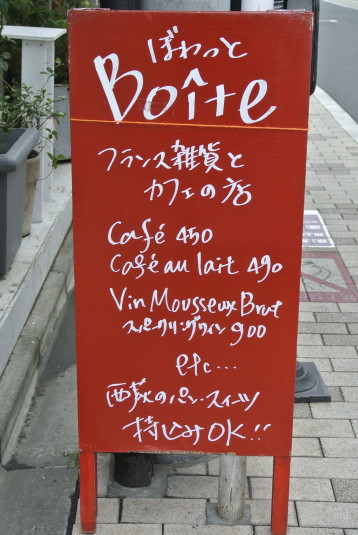 ぼわっと
Boîte
フランス雑貨と
カフェの店
Café 450
Café au lait 490
Vin Mousseux Brut
スパークリングワイン 900
etc...
西荻のパン・スイーツ
持込みOK!!